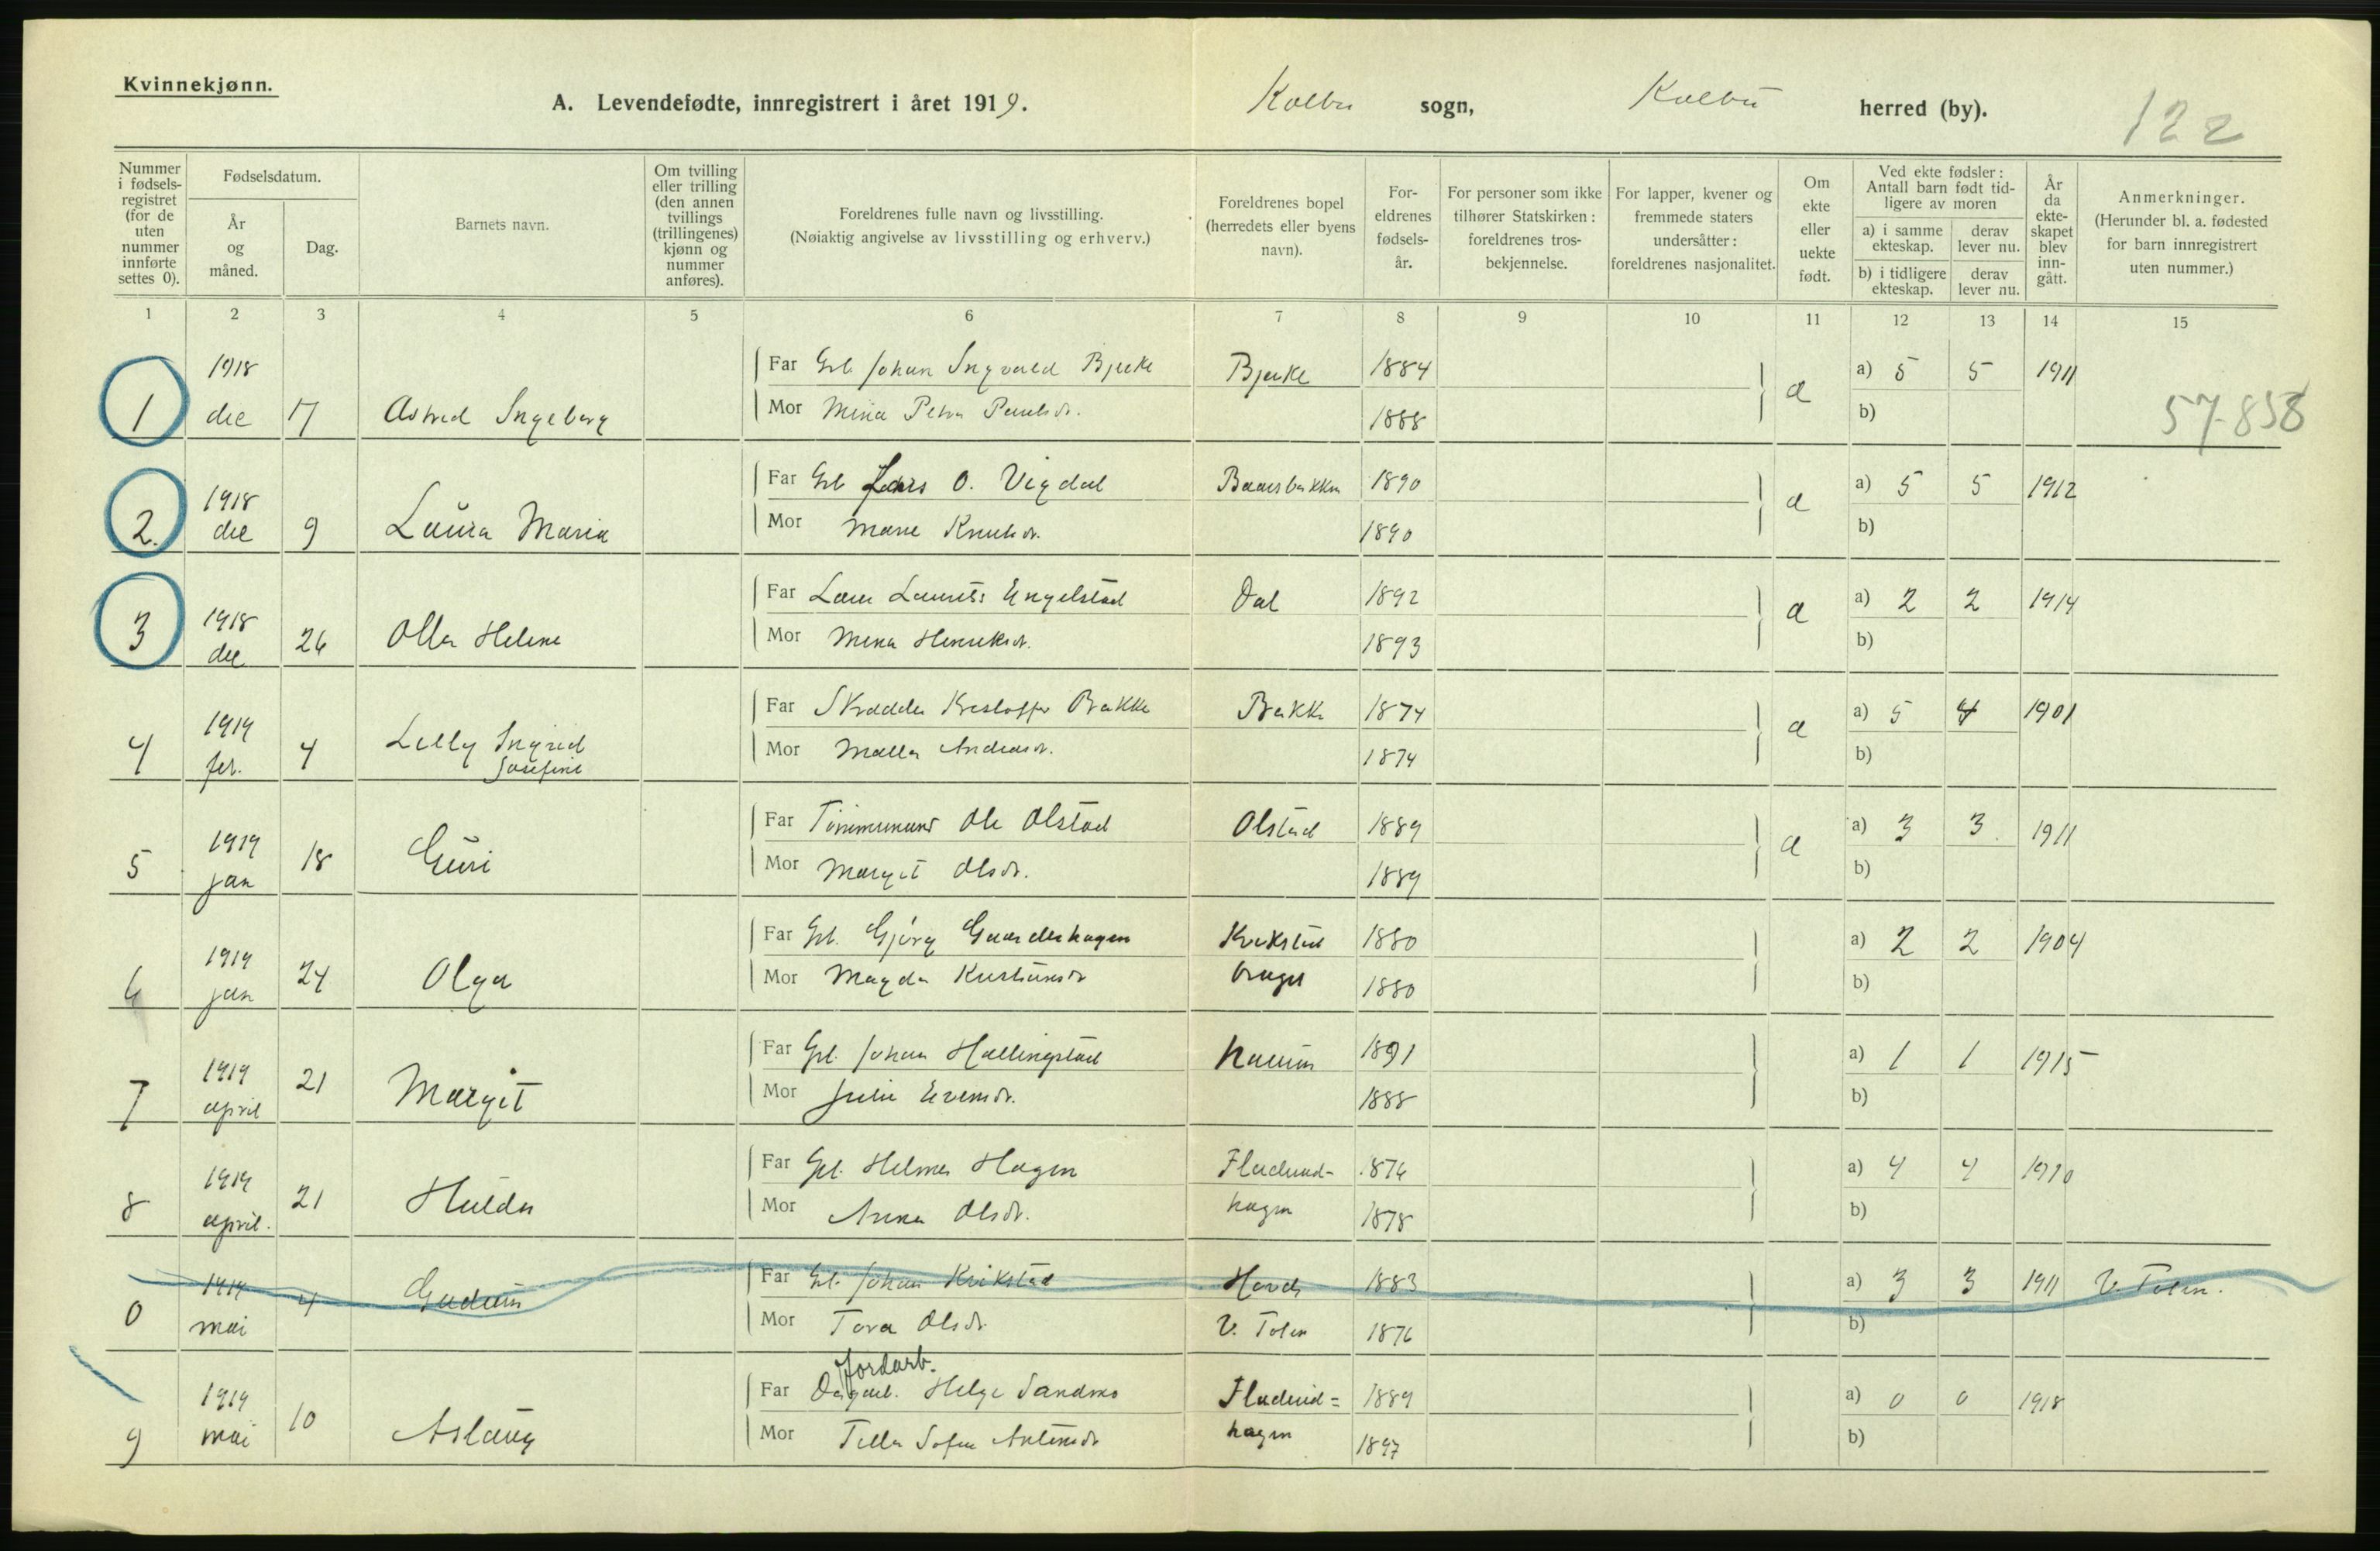 Kvinnekjønn.
A. Levendefødte, innregistrert i året 1919. Kolbu sogn, Kolbu herred (by).
122
Nummer i fødsels-registret (for de uten nummer innførte settes 0).
Fødselsdatum.
År og måned.
Dag.
Barnets navn.
Om tvilling eller trilling (den annen tvillings (trillingenes) kjønn og nummer anføres).
Foreldrenes fulle navn og livsstilling.
(Nøiaktig angivelse av livsstilling og erhverv.)
Foreldrenes bopel (herredets eller byens navn).
For-eldrenes fødsels-år.
For personer som ikke tilhører Statskirken: foreldrenes tros-bekjennelse.
For lapper, kvener og fremmede staters undersåtter: foreldrenes nasjonalitet.
Om ekte eller uekte født.
Ved ekte fødsler: Antall barn født tid-ligere av moren
a) i samme ekteskap.
derav lever nu.
b) i tidligere ekteskap.
derav lever nu.
År da ekte-skapet blev inn-gått.
Anmerkninger.
(Herunder bl. a. fødested for barn innregistrert uten nummer.)
1 2 3 4 5 6 7 8 9 10 11 12 13 14 15
1918 Far Johan Ingvald Bjerke Bjerke 1884 a) 5 5 1911
1 dec 17 Astrid Ingeborg Mor Mina Petra 1888 b)
57-858
1918 Far O. Vigdal 1890 a) 5 5 1912
2. dec 9 Laura Maria Mor Marie Knutsdr. 1890 b)
1918 Far Engelstad Dal 1892 a) 2 2 1914
3 dec 26 Olla Helene Mor Mina Henriksdr. 1893 b)
1919 Far Skrædder Kristoffer Bakke Bakke 1874 a) 5 4 1901
4 feb. 4 Lilly Ingrid Josefine Mor Andersdr. 1874 b)
1919 Far Tømmermand Ole Olstad Olstad 1889 a) 3 3 1911
5 jan 18 Guri Mor Margit Olsdr. 1889 b)
1919 Far Gaarderhagen 1880 a) 2 2 1904
6 jan 24 Olga Mor Magda Kristiansdr 1880 b)
1919 Far Johan Hallingstad 1891 a) 1 1 1915
7 april 21 Margit Mor Julie Evensdr. 1888 b)
1919 Far Helmer Hagen 1876 a) 4 4 1910
8 april. 21 Hulda Mor Anna Olsdr. hagen 1878 b)
1919 Far Johan Krikstad 1883 a) 3 3 1911 V. Toten.
0 mai 4 Gudrun Mor Tora Olsdr. V. Toten 1876 b)
Jordarb.
1919 Far Dagarb. Helge Sandmo 1889 a) 0 0 1918
9 mai 10 Aslaug Mor Tilla Sofie Antonsdr hagen 1897 b)